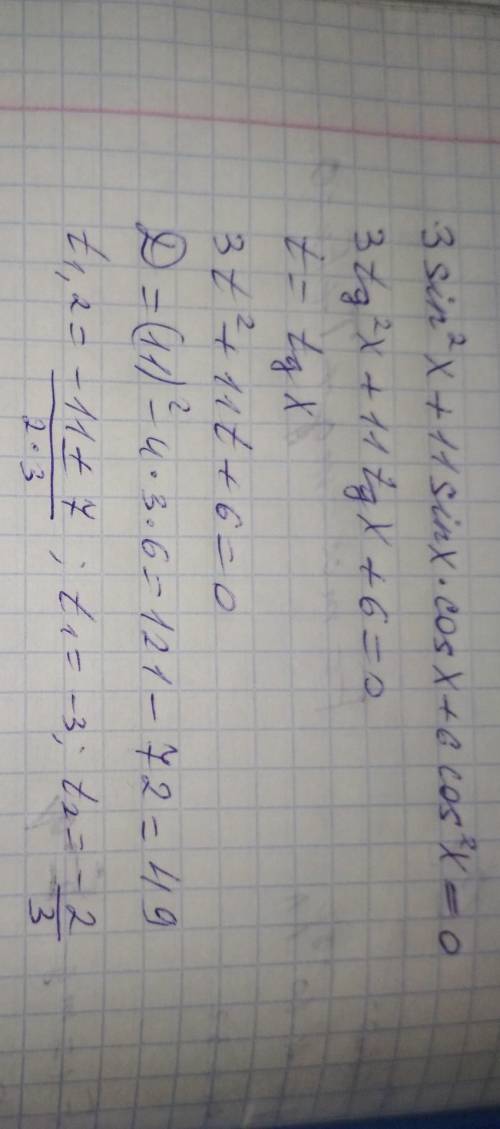 3 sin²x + 11 sinx · cosx + 6 cos²x = 0
3 tg²x + 11 tgx + 6 = 0
t = tg x
3t² + 11t + 6 = 0
D = (11)² - 4·3·6 = 121 - 72 = 49
t₁,₂ = (-11 ± 7)/(2·3) ; t₁ = -3; t₂ = -2/3